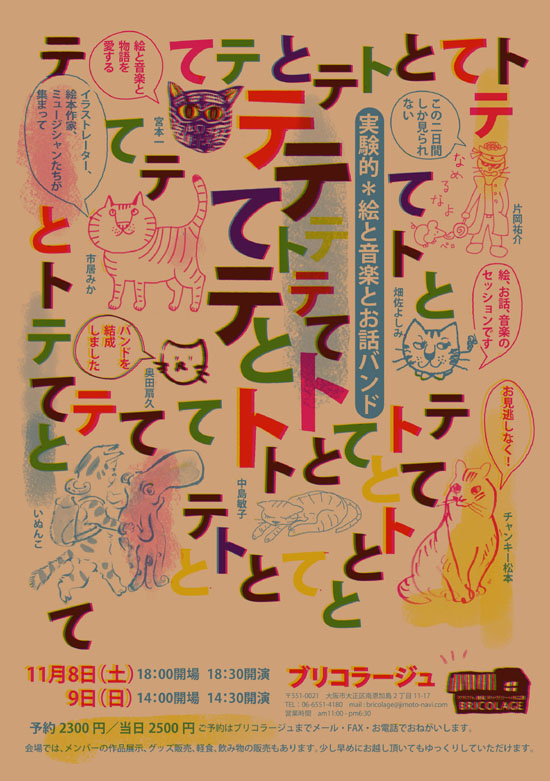 テてテとテトとてト
絵と音楽と
物語を
愛する
宮本一
イラストレーター、
絵本作家、
ミュージシャンたちが
集まって
市居みか
バンドを
結成
しました
奥田扇久
実験的＊絵と音楽とお話バンド
この二日間
しか見られ
ない
なめるなよ
片岡祐介
畑佐よしみ
絵、お話、音楽の
セッションです
お見逃しなく！
チャンキー松本
中島敏子
いぬんこ
てテテ
テテて
とてテ
トト
トテテと
テとて
てテトテ
とててトとてト
トとて
テト
トと
ととてと
と
て
11月8日（土）18:00開場 18:30開演
9日（日）14:00開場 14:30開演
ブリコラージュ
〒551-0021 大阪市大正区南恩加島2丁目11-17
TEL：06-6551-4180 mail : bricolage@jimoto-navi.com
営業時間 am11:00 - pm6:30
BRICOLAGE
予約 2300円／当日 2500円 ご予約はブリコラージュまでメール・FAX・お電話でおねがいします。
会場では、メンバーの作品展示、グッズ販売、軽食、飲み物の販売もあります。少し早めにお越し頂いてもゆっくりしていただけます。